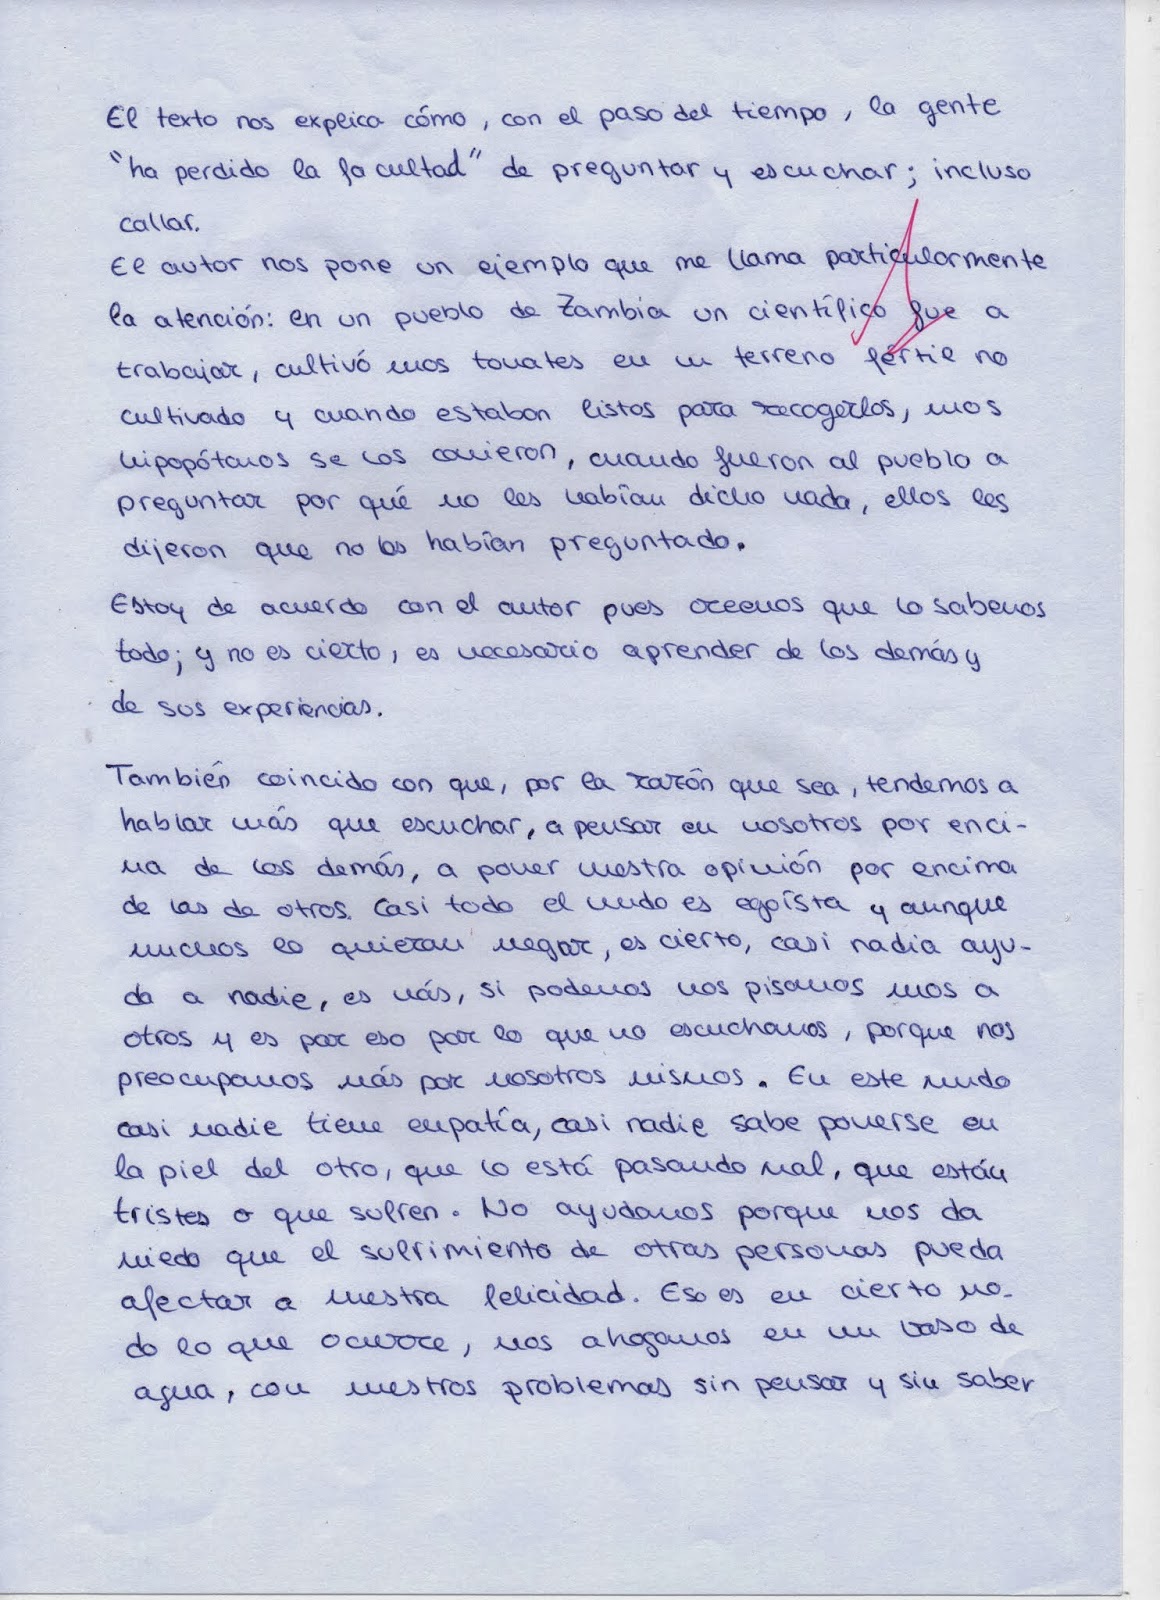 El texto nos explica cómo, con el paso del tiempo, la gente
"ha perdido la facultad" de preguntar y escuchar; incluso
callar.
El autor nos pone un ejemplo que me llama particularmente
la atención: en un pueblo de Zambia un científico fue a
trabajar, cultivó unos tomates en un terreno fértil no
cultivado y cuando estaban listos para recogerlos, unos
hipopótamos se los comieron, cuando fueron al pueblo a
preguntar por qué no les habían dicho nada, ellos les
dijeron que no los habían preguntado.
Estoy de acuerdo con el autor pues creemos que lo sabemos
todo; y no es cierto, es necesario aprender de los demás y
de sus experiencias.
También coincido con que, por la razón que sea, tendemos a
hablar más que escuchar, a pensar en nosotros por enci-
ma de los demás, a poner nuestra opinión por encima
de las de otros. Casi todo el mundo es egoísta y aunque
muchos lo quieran negar, es cierto, casi nadie ayu-
da a nadie, es más, si podemos nos pisamos unos a
otros y es por eso por lo que no escuchamos, porque nos
preocupamos más por nosotros mismos. En este mundo
casi nadie tiene empatía, casi nadie sabe ponerse en
la piel del otro, que lo está pasando mal, que están
tristes o que sufren. No ayudamos porque nos da
miedo que el sufrimiento de otras personas pueda
afectar a nuestra felicidad. Eso es en cierto mo-
do lo que ocurre, nos ahogamos en un vaso de
agua, con nuestros problemas sin pensar y sin saber